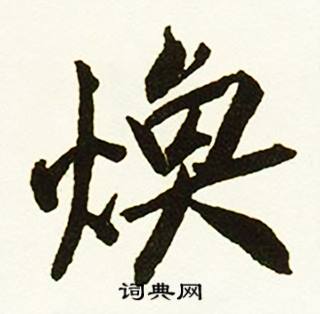 焕
词典网